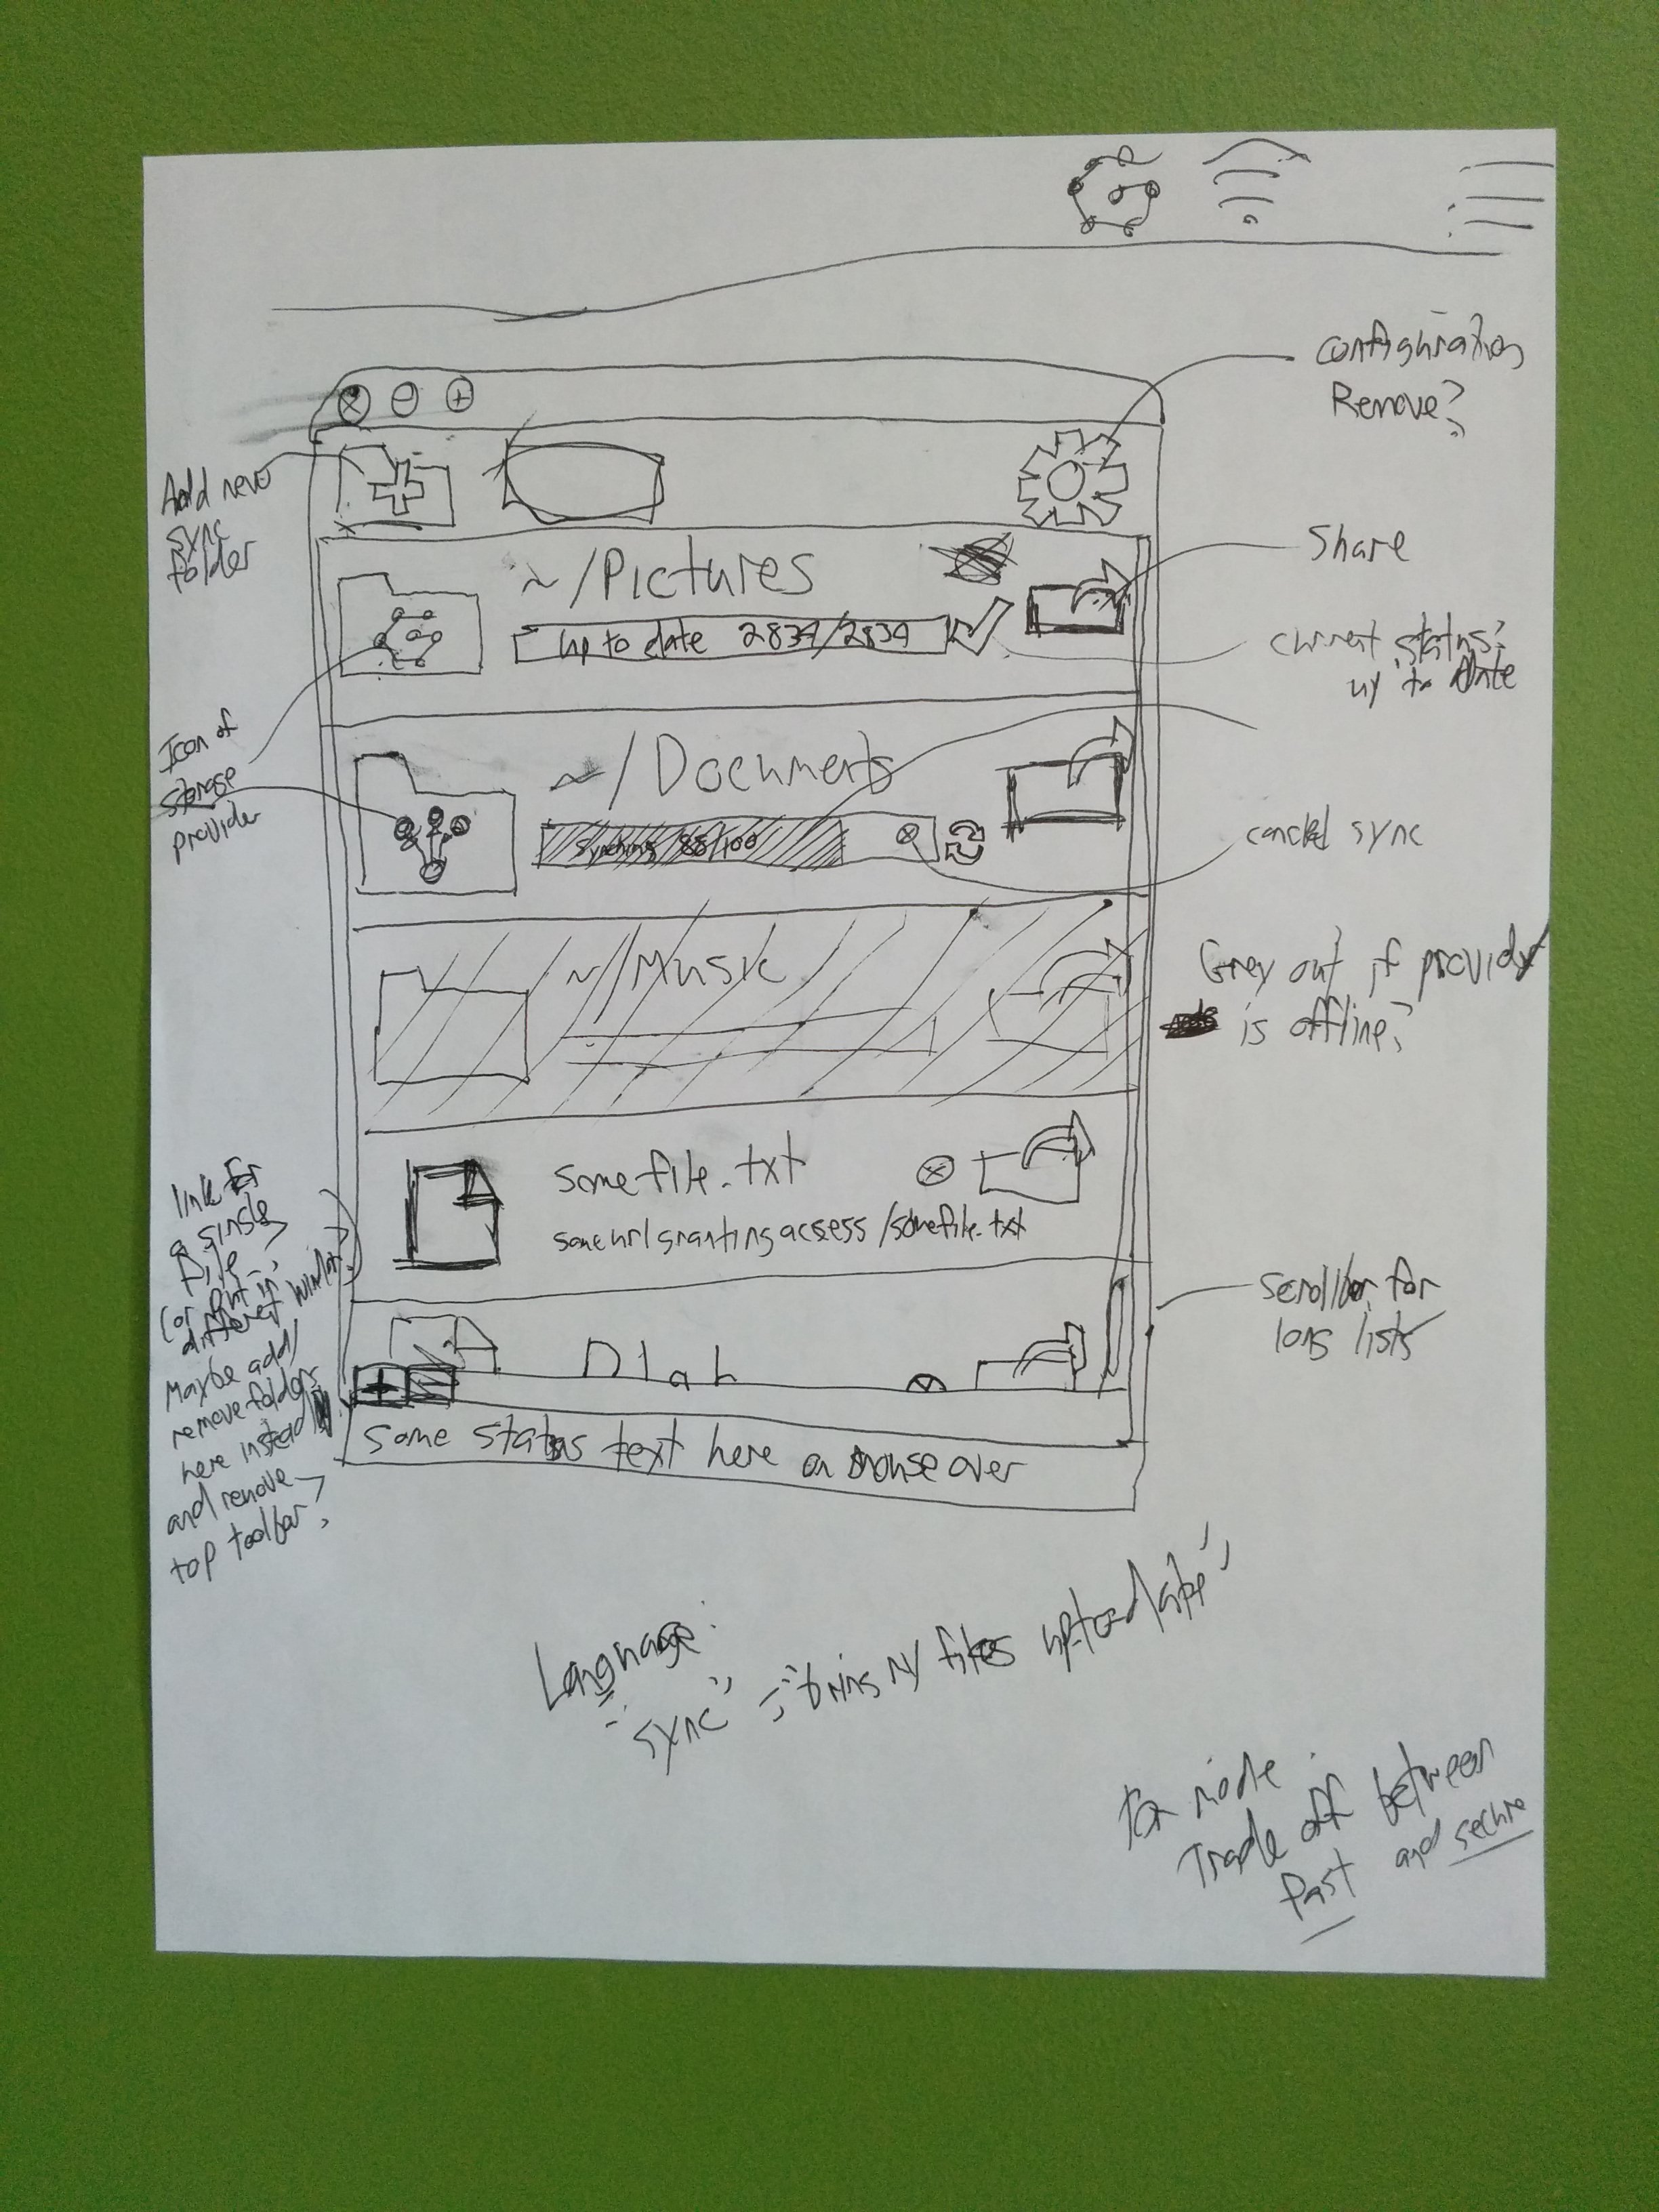 configuration
Remove?
Add new
sync
folder
~/Pictures
Share
up to date 2839/2839
current status:
up to date
Icon of
storage
provider
~/Documents
synching 88/100
cancel sync
~/Music
Grey out if provider
is offline?
somefile.txt
someurlgrantingaccess/somefile.txt
link for
a single
file?
(or put in
different window?)
Scrollbar for
long lists
Blah
Maybe add/
remove folders
here instead
and remove
top toolbar?
Some status text here on mouse over
Language:
"sync" = "bring my files up-to-date"
Tor mode
Trade off between
fast and secure